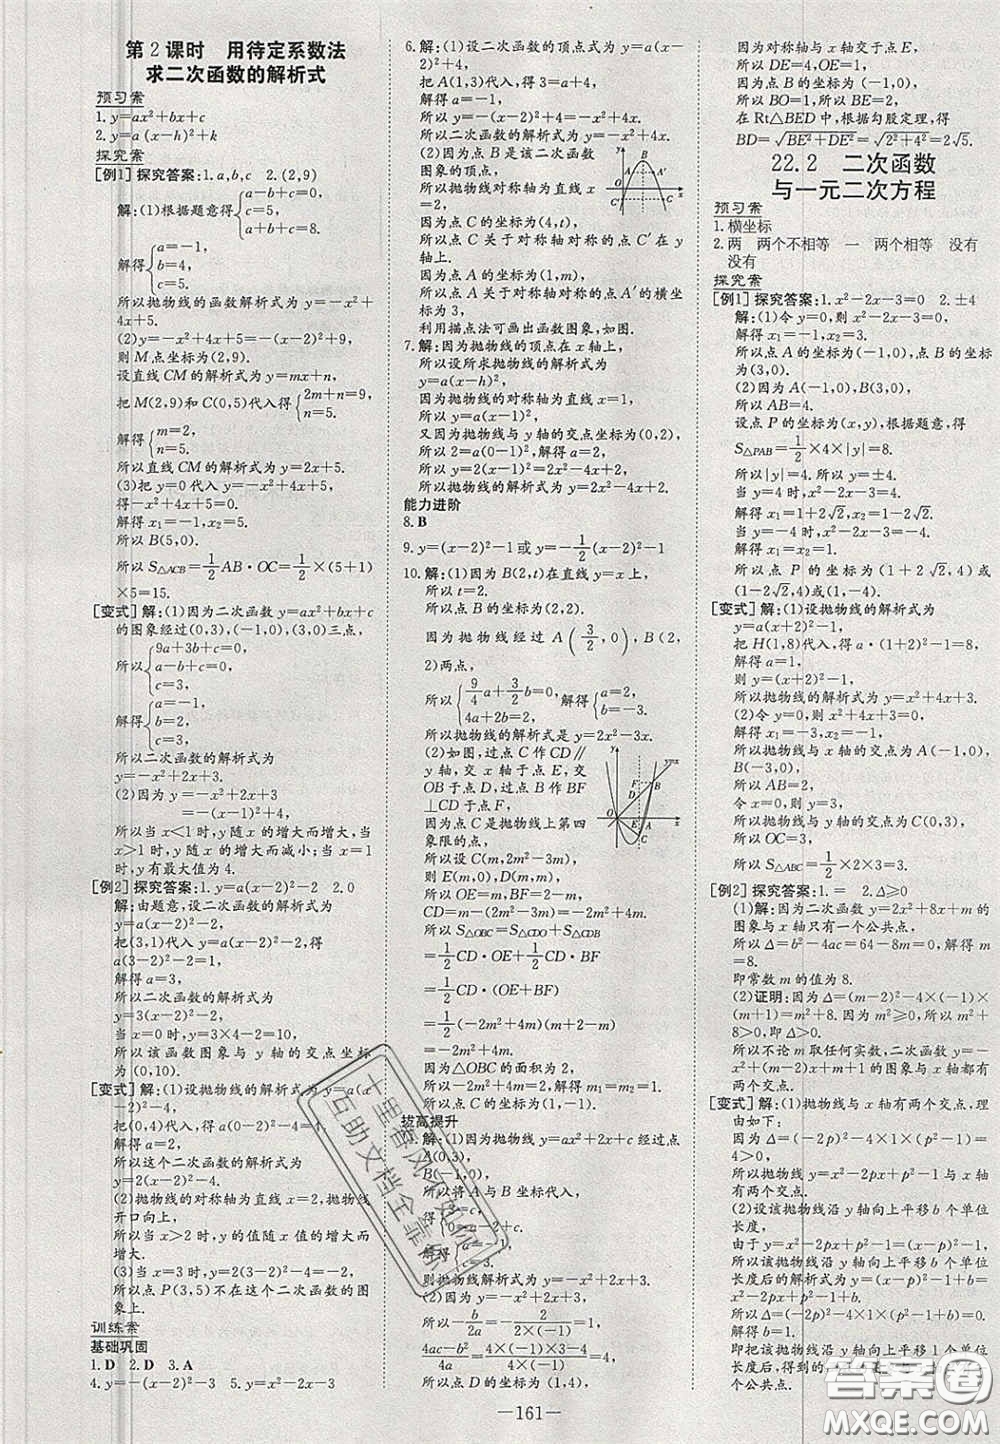 第2课时 用待定系数法
求二次函数的解析式
预习案
1. y=ax²+bx+c
2. y=a(x-h)²+k
探究案
[例1] 探究答案:1. a,b,c 2. (2,9)
解:(1)根据题意得{a-b+c=0,
c=5,
a+b+c=8.
解得{a=-1,
b=4,
c=5.
所以抛物线的函数解析式为y=-x²+
4x+5.
(2)y=-x²+4x+5=-(x-2)²+9,
则M点坐标为(2,9).
设直线CM的解析式为y=mx+n,
把M(2,9)和C(0,5)代入得{2m+n=9,
n=5.
解得{m=2,
n=5.
所以直线CM的解析式为y=2x+5.
(3)把y=0代入y=-x²+4x+5,
得-x²+4x+5=0.
解得x₁=-1,x₂=5.
所以B(5,0).
所以S△ACB=1/2 AB·OC=1/2×(5+1)
×5=15.
[变式] 解:(1)因为二次函数y=ax²+bx+c
的图象经过(0,3),(-1,0),(3,0)三点,
所以{9a+3b+c=0,
a-b+c=0,
c=3,
解得{a=-1,
b=2,
c=3,
所以二次函数的解析式为
y=-x²+2x+3.
(2)因为y=-x²+2x+3
=-(x-1)²+4,
所以当x<1时,y随x的增大而增大,当
x>1时,y随x的增大而减小;当x=1
时,y有最大值为4.
[例2] 探究答案:1. y=a(x-2)²-2 2. 0
解:由题意,设二次函数的解析式为
y=a(x-2)²-2,
把(3,1)代入y=a(x-2)²-2,得
a(3-2)²-2=1,
解得a=3,
所以二次函数的解析式为
y=3(x-2)²-2,
当x=0时,y=3×4-2=10,
所以该函数图象与y轴的交点坐标
为(0,10).
[变式] 解:(1)设抛物线的解析式为y=a(x
-2)²-4,
把(0,4)代入,得a(0-2)²-4=4,
解得a=2,
所以这个二次函数的解析式为
y=2(x-2)²-4.
(2)抛物线的对称轴为直线x=2,抛物线
开口向上,
所以当x>2时,y的值随x的增大而
增大.
(3)当x=3时,y=2(x-2)²-4=-2,
所以点P(3,5)不在这个二次函数的图
象上.
训练案
基础巩固
1. D 2. D 3. A
4. y=-(x-2)²-3 5. y=x²-x-3
6. 解:(1)设二次函数的顶点式为y=a(x-
2)²+4,
把A(1,3)代入,得3=a(1-2)²+4,
解得a=-1,
所以y=-(x-2)²+4=-x²+4x.
所以二次函数的解析式为y=-x²+4x.
(2)因为点B是该二次函数
图象的顶点,
所以抛物线对称轴为直线x
=2,
因为点C的坐标为(4,t),
所以点C关于对称轴对称的点C′在y
轴上.
因为点A的坐标为(1,3),
所以点A关于对称轴对称的点A′的横坐
标为3,
利用描点法可画出函数图象,如图.
7. 解:因为抛物线的顶点在x轴上,
所以设所求抛物线的解析式为
y=a(x-h)²,
因为抛物线的对称轴为直线x=1,
所以y=a(x-1)²,
又因为抛物线与y轴的交点为(0,2),
所以2=a(0-1)²,解得a=2.
所以y=2(x-1)²,
所以抛物线的解析式为y=2x²-4x+2.
能力进阶
8. B
9. y=(x-2)²-1或y=-1/2(x-2)²-1
10. 解:(1)因为B(2,t)在直线y=x上,
所以t=2.
所以点B的坐标为(2,2).
因为抛物线经过A(3/2,0),B(2,
2)两点,
所以{9/4 a+3/2 b=0,
4a+2b=2,
解得{a=2,
b=-3.
所以抛物线的解析式是y=2x²-3x.
(2)如图,过点C作CD∥
y轴,交x轴于点E,交
OB于点D,过点B作BF
⊥CD于点F,
因为点C是抛物线上第四
象限的点,
所以设C(m,2m²-3m),
则E(m,0),D(m,m),
所以OE=m,BF=2-m,
CD=m-(2m²-3m)=-2m²+4m,
所以S△OBC=S△CDO+S△CDB
=1/2 CD·OE+1/2 CD·BF
=1/2 CD·(OE+BF)
=1/2(-2m²+4m)(m+2-m)
=-2m²+4m.
因为△OBC的面积为2,
所以-2m²+4m=2,解得m₁=m₂=1.
所以点C的坐标为(1,-1).
拔高提升
解:(1)因为抛物线y=ax²+2x+c经过点
A(0,3),
B(-1,0),
所以将A与B坐标代入,
解得
则抛物线解析式为y=-x²+2x+3.
(2)因为-b/2a=-2/(2×(-1))=1,
(4ac-b²)/4a=(4×(-1)×3-4)/(4×(-1))=4,
所以点D的坐标为(1,4),
因为对称轴与x轴交于点E,
所以DE=4,OE=1,
因为点B的坐标为(-1,0),
所以BO=1,所以BE=2,
在Rt△BED中,根据勾股定理,得
BD=√(BE²+DE²)=√(2²+4²)=2√5.
22.2 二次函数
与一元二次方程
预习案
1. 横坐标
2. 两 两个不相等 一 两个相等 没有
没有
探究案
[例1] 探究答案:1. x²-2x-3=0 2. ±4
解:(1)令y=0,则x²-2x-3=0,
解得x₁=-1,x₂=3.
所以点A的坐标为(-1,0),点B的坐标
为(3,0).
(2)因为A(-1,0),B(3,0),
所以AB=4.
设点P的坐标为(x,y),根据题意,得
S△PAB=1/2×4×|y|=8.
所以|y|=4,所以y=±4.
当y=4时,x²-2x-3=4.
解得x₁=1+2√2,x₂=1-2√2.
当y=-4时,x²-2x-3=-4.
解得x₁=x₂=1.
所以点P的坐标为(1+2√2,4)或
(1-2√2,4)或(1,-4).
[变式] 解:(1)设抛物线的解析式为
y=a(x+2)²-1,
把H(1,8)代入,得a·(1+2)²-1=8,
解得a=1,
则y=(x+2)²-1,
所以抛物线的解析式为y=x²+4x+3.
(2)令y=0,则x²+4x+3=0,
解得x₁=-3,x₂=-1.
所以抛物线与x轴的交点坐标为A(-3,
0),B(-1,0),
所以AB=2.
令x=0,则y=3,
所以抛物线与y轴的交点为C(0,3),
所以OC=3,
所以S△ABC=1/2×2×3=3.
[例2] 探究答案:1. = 2. Δ≥0
(1)解:因为二次函数y=2x²+8x+m的
图象与x轴只有一个公共点,
所以Δ=b²-4ac=64-8m=0,解得m
=8.
即常数m的值为8.
(2)证明:因为Δ=(m-2)²-4×(-1)×
(m+1)=m²+8,因为m²≥0,所以m²+
8>0,即Δ>0.
所以不论m取任何实数,二次函数y=
-x²+(m-2)x+m+1的图象
x轴有两个公共点.
[变式] 解:(1)抛物线与x轴有两个交点,理
由如下:
因为Δ=(-2p)²-4×1×(p²-1)=
4>0,
所以抛物线y=x²-2px+p²-1与x轴
有两个交点.
(2)设该抛物线沿y轴向上平移k个单位
长度,
由于y=x²-2px+p²-1,
所以该抛物线沿y轴向上平移k个单位
长度后的解析式为
y=x²-2px+p²-1+k,
所以Δ=(-2p)²-4×1×(p²-1+k)=
0,
所以k=1.
即把该抛物线沿y轴向上平移1个单位
—161—
十里春风不如你
互助文档全靠你
答案圈
MXQE.COM